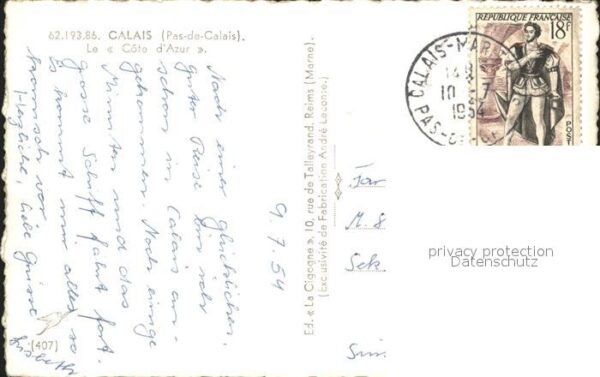 62.193.86. CALAIS (Pas-de-Calais).
Le « Côte d'Azur ».
Nach einer glücklichen,
guten Reise bin ich
schon in Calais an-
gekommen. Noch einige
Minuten und das
grosse Schiff fährt fort.
Es kommt mir alles so
traumisch vor.
Herzliche, liebe Grüsse
Lisbeth
(407)
9.7.54
Ed. « La Cigogne », 10, rue de Talleyrand, Reims (Marne).
(Exclusivité de Fabrication André Leconte.)
RÉPUBLIQUE FRANÇAISE
18F
POSTES
CALAIS-MAR
10 -7
1954
PAS-DE-
M. &
Sek
privacy protection
Datenschutz